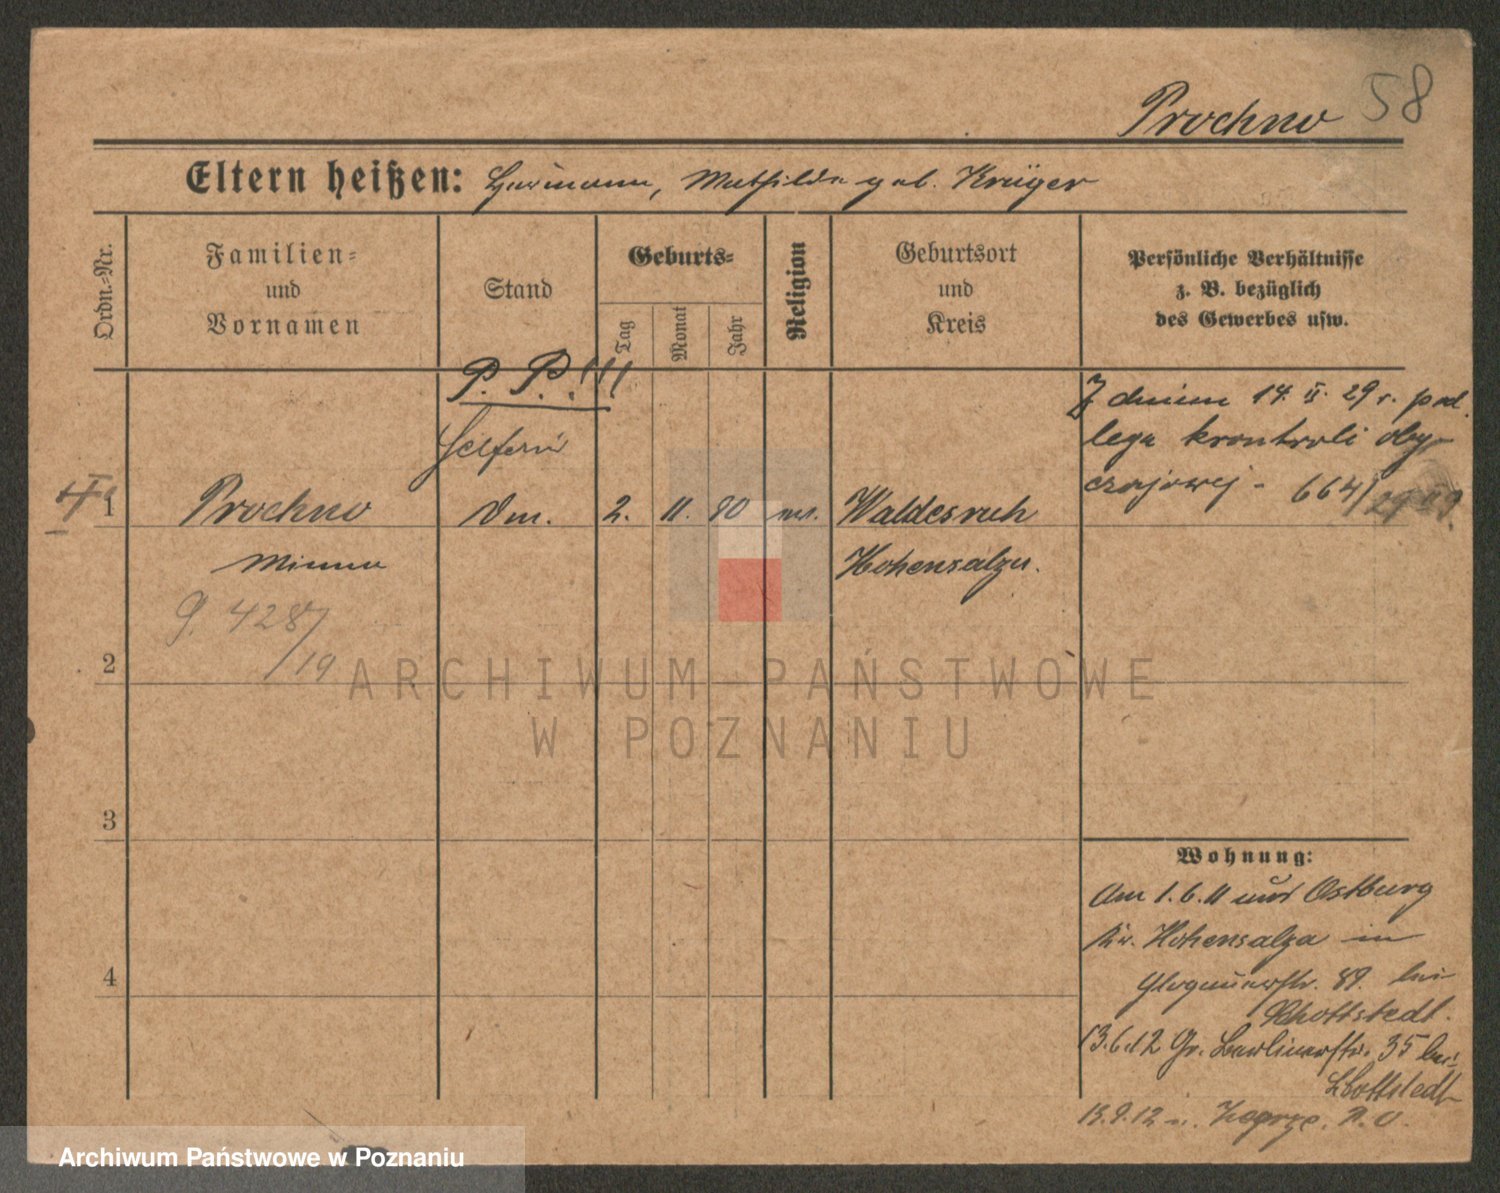 58
Prochno
Eltern heißen: Hermann, Mathilde geb. Krüger
Ordn.-Nr.
Familien-
und
Vornamen
Stand
Geburts-
Tag
Monat
Jahr
Religion
Geburtsort
und
Kreis
Persönliche Verhältnisse
z. B. bezüglich
des Gewerbes usw.
P. P.!!!
Z dniem 14. II. 29 r. pod
lega krontroli oby
czajowej - 664/29
1 Prochno 2. 11. 80 Waldesruh
Minna Hohensalza.
9. 4287
/19
2
3
4
Wohnung:
Am 1.6.11 aus Ostburg
Kr. Hohensalza in
Glogauerstr. 89. bei
Schottstedt.
13.6.12 Gr. Berlinerstr. 35 bei
Schottstedt
13.9.12 n. Zegrze. R. O.
ARCHIWUM PAŃSTWOWE
W POZNANIU
Archiwum Państwowe w Poznaniu